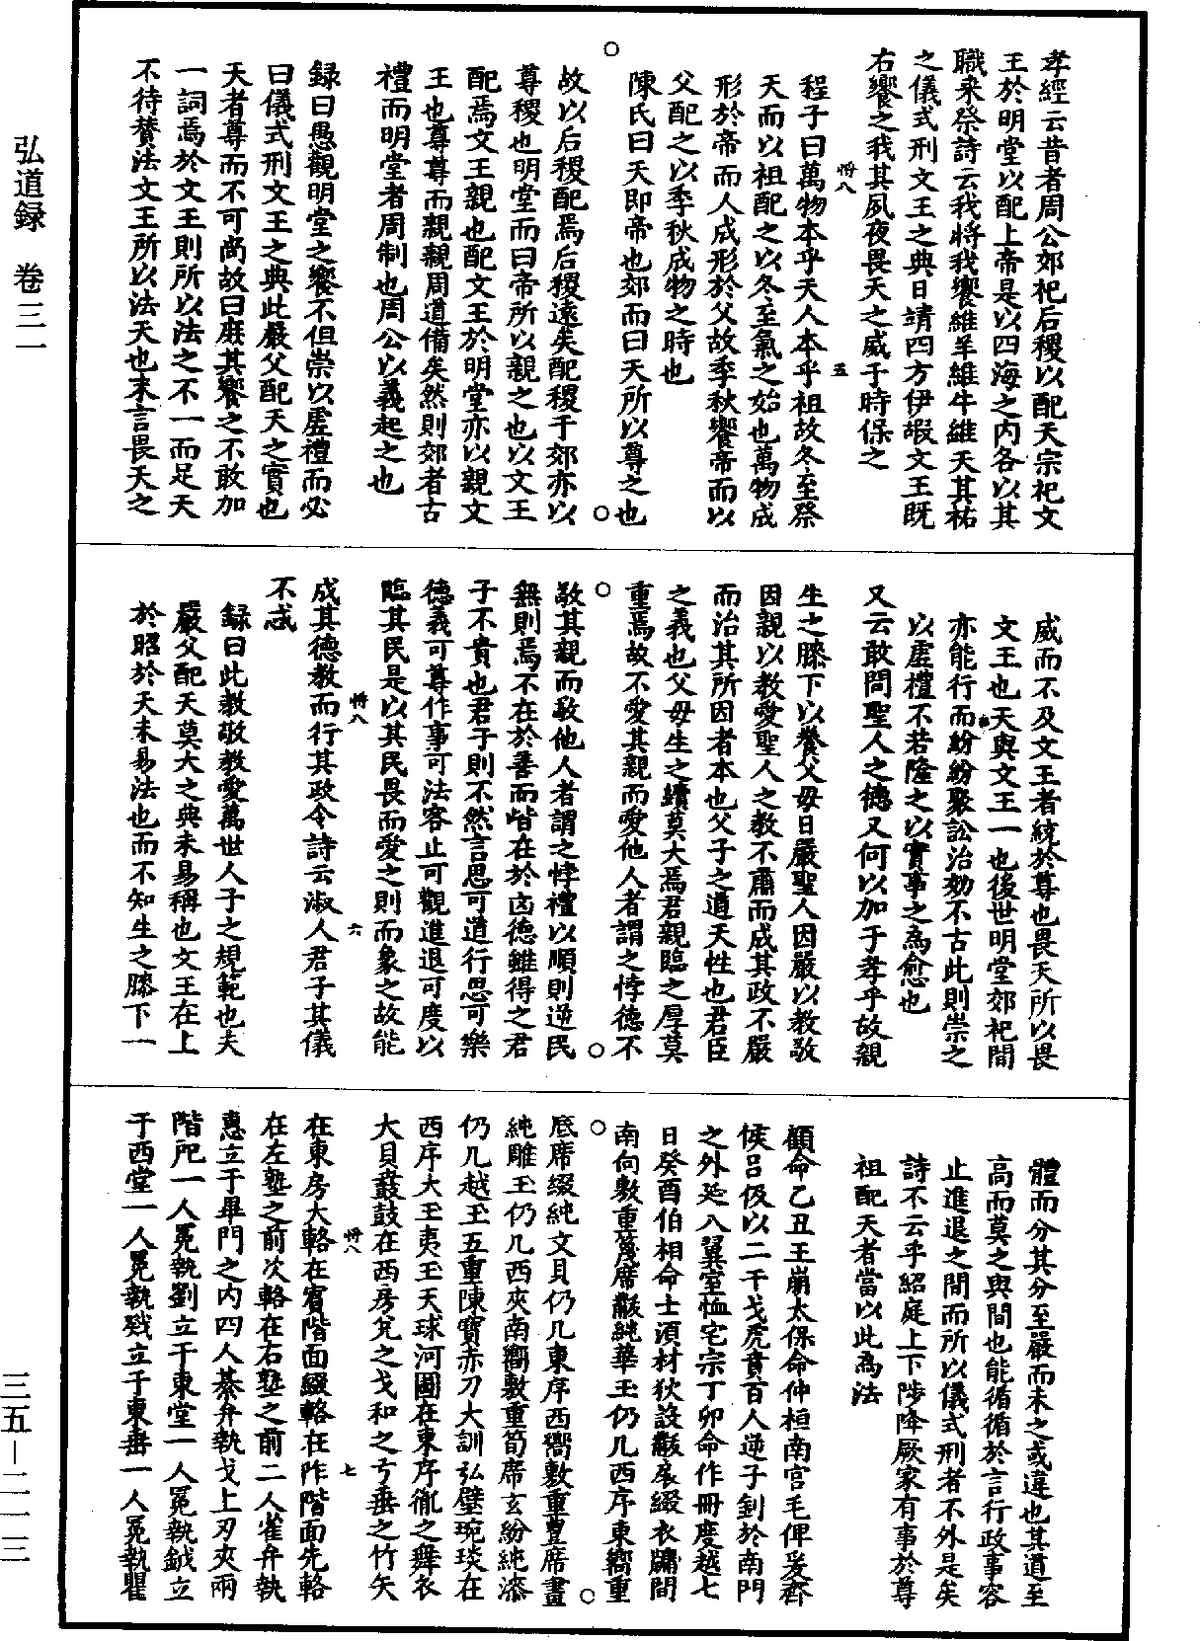 弘道録　卷三一
三五－二一三
孝經云昔者周公郊祀后稷以配天宗祀文
王於明堂以配上帝是以四海之内各以其
職來祭詩云我將我饗維羊維牛維天其祐
之儀式刑文王之典日靖四方伊嘏文王既
右饗之我其夙夜畏天之威于時保之
將八　五
程子曰萬物本乎天人本乎祖故冬至祭
天而以祖配之以冬至氣之始也萬物成
形於帝而人成形於父故季秋饗帝而以
父配之以季秋成物之時也
陳氏曰天即帝也郊而曰天所以尊之也
故以后稷配焉后稷遠矣配稷于郊亦以
尊稷也明堂而曰帝所以親之也以文王
配焉文王親也配文王於明堂亦以親文
王也尊尊而親親周道備矣然則郊者古
禮而明堂者周制也周公以義起之也
録曰愚觀明堂之饗不但崇以虚禮而必
曰儀式刑文王之典此嚴父配天之實也
天者尊而不可啇故曰庶其饗之不敢加
一詞焉於文王則所以法之不一而足天
不待贊法文王所以法天也末言畏天之
威而不及文王者統於尊也畏天所以畏
文王也天與文王一也後世明堂郊祀間
亦能行而紛紛聚訟治効不古此則崇之
以虚禮不若隆之以實事之為愈也
又云敢問聖人之德又何以加于孝乎故親
生之膝下以養父毋日嚴聖人因嚴以教敬
因親以教愛聖人之教不肅而成其政不嚴
而治其所因者本也父子之道天性也君臣
之義也父毋生之續莫大焉君親臨之厚莫
重焉故不愛其親而愛他人者謂之悖德不
敬其親而敬他人者謂之悖禮以順則逆民
無則焉不在於善而皆在於凶德雖得之君
子不貴也君子則不然言思可道行思可樂
德義可尊作事可法容止可觀進退可度以
臨其民是以其民畏而愛之則而象之故能
將八　六
成其德教而行其政令詩云淑人君子其儀
不忒
録曰此教敬教愛萬世人子之規範也夫
嚴父配天莫大之典未易稱也文王在上
於昭於天未易法也而不知生之膝下一
體而分其分至嚴而未之或違也其道至
高而莫之與間也能循循於言行政事容
止進退之間而所以儀式刑者不外是矣
詩不云乎紹庭上下陟降厥家有事於尊
祖配天者當以此為法
顧命乙丑王崩太保命仲桓南宫毛俾爰齊
侯吕伋以二干戈虎賁百人逆子釗於南門
之外延入翼室恤宅宗丁卯命作冊度越七
日癸酉伯相命士須材狄設黼扆綴衣牖間
南向敷重篾席黼純華玉仍几西序東嚮重
底席綴純文貝仍几東序西嚮敷重豐席畫
純雕玉仍几西夾南嚮敷重筍席玄紛純漆
仍几越玉五重陳寶赤刀大訓弘璧琬琰在
西序大玉夷玉天球河圖在東序胤之舞衣
大貝鼖鼓在西房兌之戈和之弓垂之竹矢
將八　七
在東房大輅在賓階面綴輅在阼階面先輅
在左塾之前次輅在右塾之前二人雀弁執
惠立于畢門之内四人綦弁執戈上刃夾兩
階戺一人冕執劉立于東堂一人冕執鉞立
于西堂一人冕執戣立于東垂一人冕執瞿